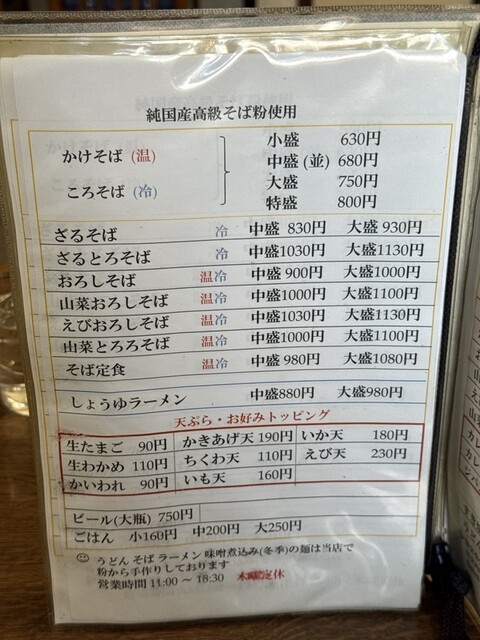 純国産高級そば粉使用
かけそば (温)
ころそば (冷)
小盛 630円
中盛 (並) 680円
大盛 750円
特盛 800円
ざるそば 冷 中盛 830円 大盛 930円
ざるとろそば 冷 中盛1030円 大盛1130円
おろしそば 温冷 中盛 900円 大盛1000円
山菜おろしそば 温冷 中盛1000円 大盛1100円
えびおろしそば 温冷 中盛1030円 大盛1130円
山菜とろろそば 温冷 中盛1000円 大盛1100円
そば定食 温冷 中盛 980円 大盛1080円
しょうゆラーメン 中盛880円 大盛980円
天ぷら・お好みトッピング
生たまご 90円 かきあげ天 190円 いか天 180円
生わかめ 110円 ちくわ天 110円 えび天 230円
かいわれ 90円 いも天 160円
ビール(大瓶) 750円
ごはん 小160円 中200円 大250円
うどん そば ラーメン 味噌煮込み(冬季)の麺は当店で
粉から手作りしております
営業時間 11:00 〜 18:30 木曜定休